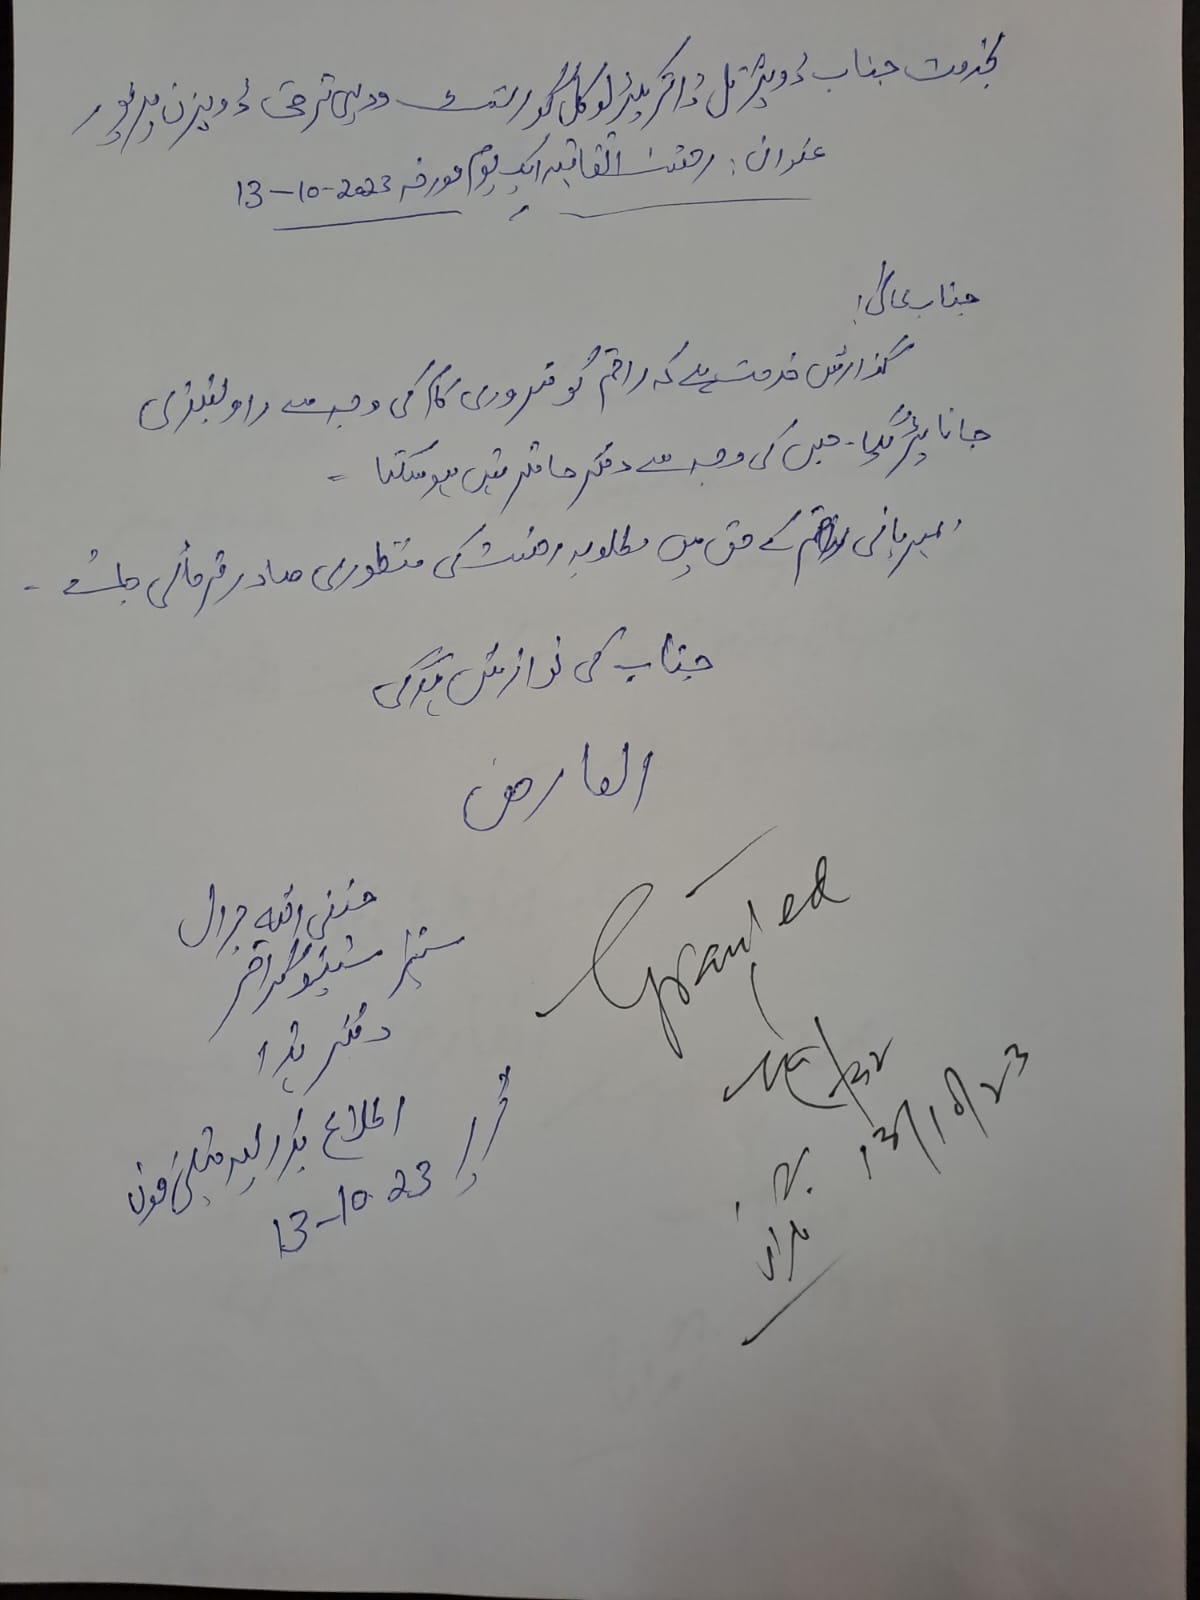 بخدمت جناب ڈویژنل ڈائریکٹر لوکل گورنمنٹ ودیہی ترقی ڈویژن میرپور
عنوان: رخصت اتفاقیہ ایک یوم مورخہ 13-10-2023
جناب عالی!
گذارش خدمت ہے کہ راقم کو ضروری کام کی وجہ سے راولپنڈی
جانا پڑ گیا۔ جس کی وجہ سے دفتر حاضر نہیں ہو سکتا ۔
مہربانی راقم کے حق میں مطلوبہ رخصت کی منظوری صادر فرمائی جائے ۔
جناب کی نوازش ہوگی
العارض
جرال
سینئر سٹینوگرافر
دفتر ہذا
اطلاع بذریعہ ٹیلی فون
تحریر 13-10-23
Granted
13/10/23